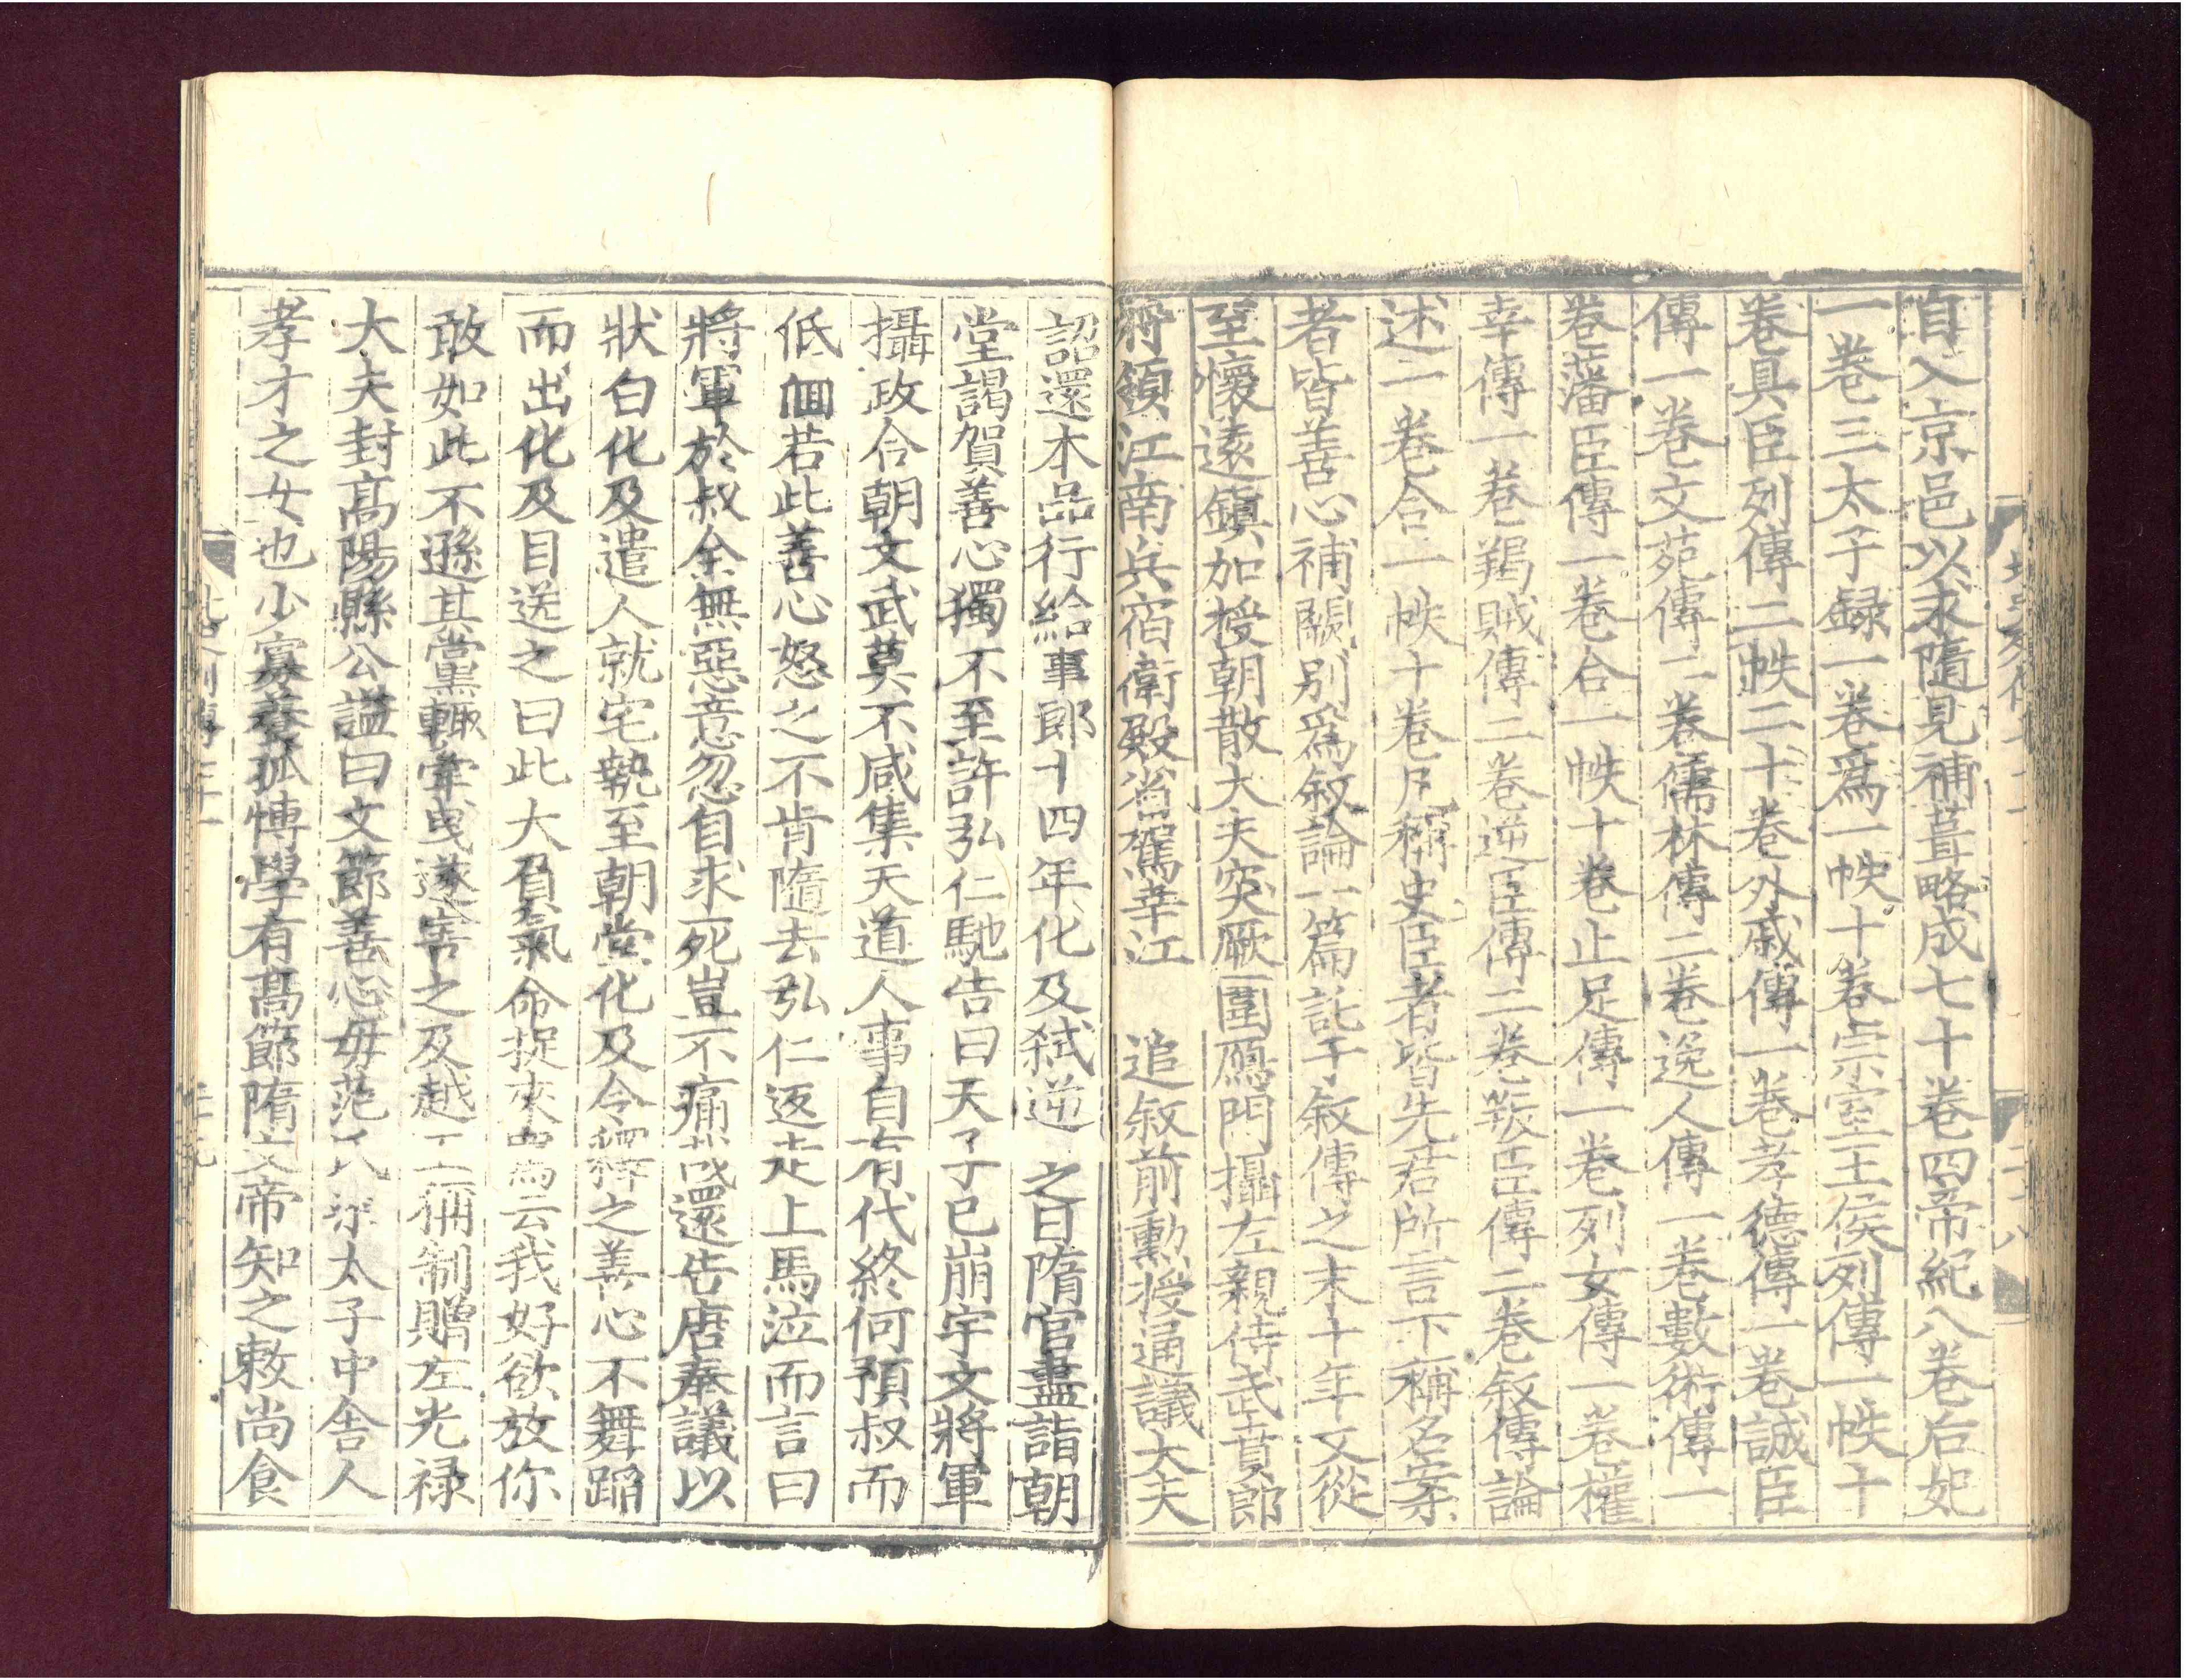 自入京邑以求隨見補葺略成七十卷四帝紀八卷后妃
一卷三太子錄一卷爲一帙十卷宗室王侯列傳一帙十
卷具臣列傳二帙二十卷外戚傳一卷孝德傳一卷誠臣
傳一卷文苑傳二卷儒林傳二卷逸人傳一卷數術傳一
卷藩臣傳一卷合一帙十卷止足傳一卷列女傳一卷權
幸傳一卷羯賊傳二卷逆臣傳二卷叛臣傳二卷敘傳論
述一卷合一帙十卷凡稱史臣者皆先君所言下稱名案
者皆善心補闕別爲敘論一篇託于敘傳之末十年又從
至懷遠鎮加授朝散大夫突厥圍鴈門攝左親侍武賁郎
將領江南兵宿衛殿省駕幸江 追敘前勳授通議大夫
詔還本品行給事郎十四年化及弑逆之日隋官盡詣朝
堂謁賀善心獨不至許弘仁馳告曰天子已崩宇文將軍
攝政合朝文武莫不咸集天道人事自有代終何預叔而
低佪若此善心怒之不肯隨去弘仁返走上馬泣而言曰
將軍於叔全無惡意忽自求死豈不痛哉還告唐奉議以
狀白化及遣人就宅執至朝堂化及令釋之善心不舞蹈
而出化及目送之曰此大負氣命捉來罵云我好欲放你
敢如此不遜其黨輙牽曳遂害之及越王稱制贈左光祿
大夫封高陽縣公諡曰文節善心母范氏梁太子中舍人
孝才之女也少寡養孤博學有高節隋文帝知之敕尚食